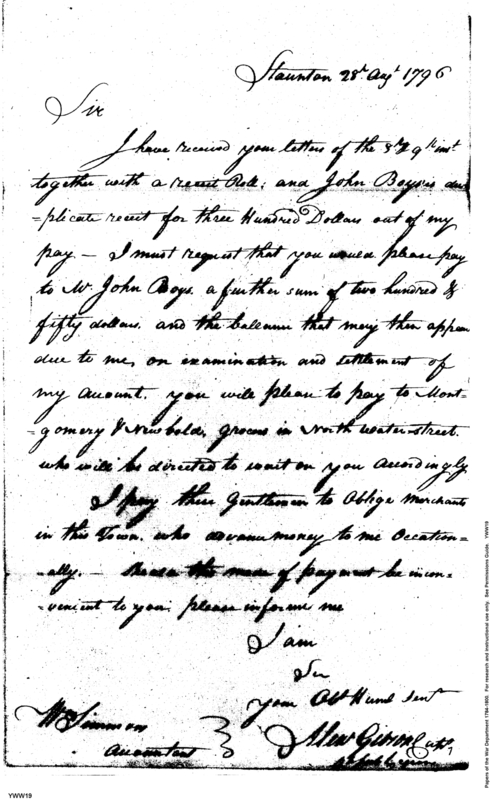 Staunton 28th Augt 1796
Sir
I have received your letters of the 3d & 9th inst
together with a receit Roll; and John Boys's du
=plicate receit for three Hundred Dollars out of my
pay. — I must request that you would please pay
to Mr John Boys. a further sum of two hundred &
fifty dollars. and the ballance that may then appear
due to me, on examination and settlement of
my account. you will please to pay to Mont-
-gomery & Newbolds, grocers in North water street.
who will be directed to wait on you accordingly
I pay these Gentlemen to Oblige merchants
in this Town. who advance money to me Occation-
-ally. — the mode of payment be incon-
-venient to you, please inform me
I am
Sir
your Obt Humb Servt
Alexr Gibson Capt
Wm Simmons
Accountant
YWW19
Papers of the War Department 1784-1800. For research and instructional use only. See Permissions Guide. YWW19